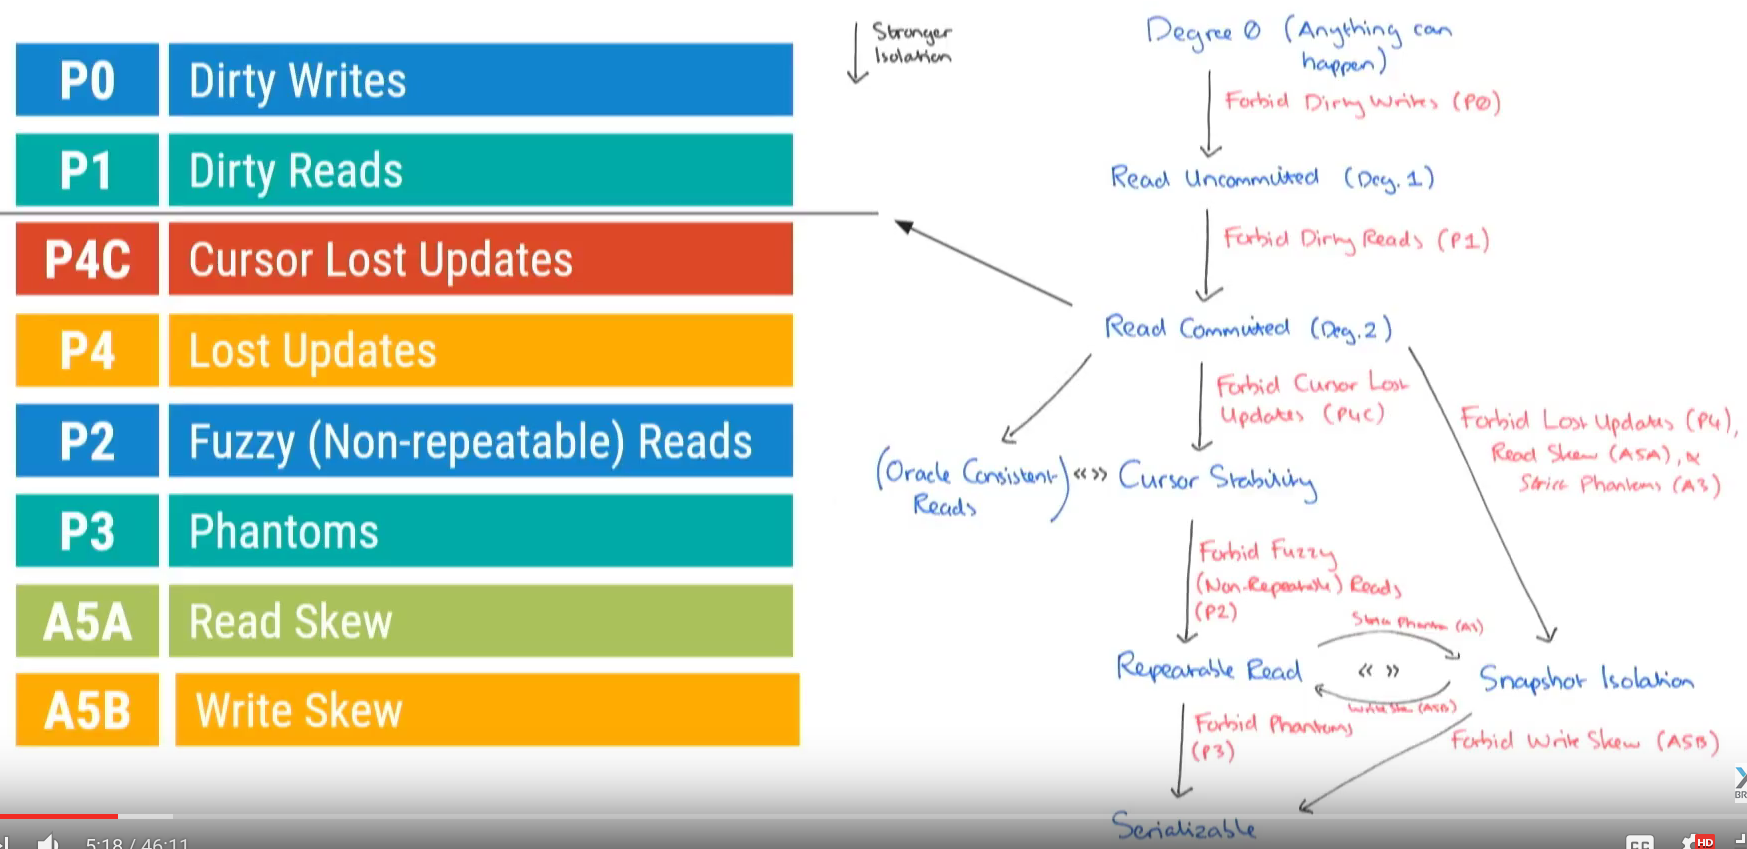 P0 Dirty Writes
P1 Dirty Reads
P4C Cursor Lost Updates
P4 Lost Updates
P2 Fuzzy (Non-repeatable) Reads
P3 Phantoms
A5A Read Skew
A5B Write Skew
Stronger
Isolation
Degree 0 (Anything can
happen)
Forbid Dirty Writes (P0)
Read Uncommitted (Deg. 1)
Forbid Dirty Reads (P1)
Read Committed (Deg. 2)
Forbid Cursor Lost
Updates (P4C)
Forbid Lost Updates (P4),
Read Skew (A5A), &
Strict Phantoms (A3)
(Oracle Consistent
Reads)
«»
Cursor Stability
Forbid Fuzzy
(Non-Repeatable) Reads
(P2)
Strict Phantom (A3)
Repeatable Read
« »
Snapshot Isolation
Write Skew (A5B)
Forbid Phantoms
(P3)
Forbid Write Skew (A5B)
Serializable
BR
5:18 / 46:11
CC
HD